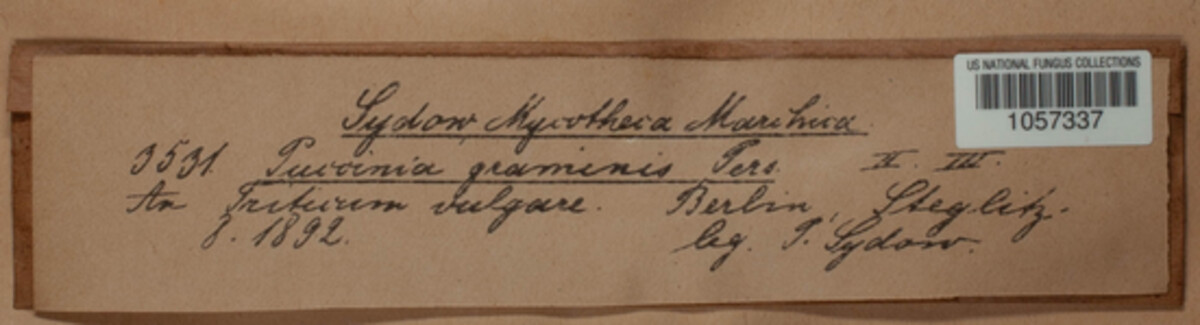 US NATIONAL FUNGUS COLLECTIONS
1057337
Sydow, Mycotheca Marchica.
3531. Puccinia graminis Pers. II. III.
An Triticum vulgare. Berlin, Steglitz.
8. 1892. leg. P. Sydow.